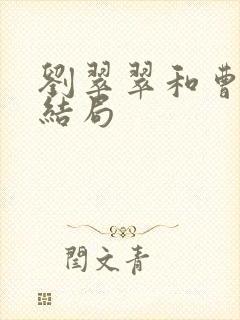 劉翠翠和曹
結局
閆文青